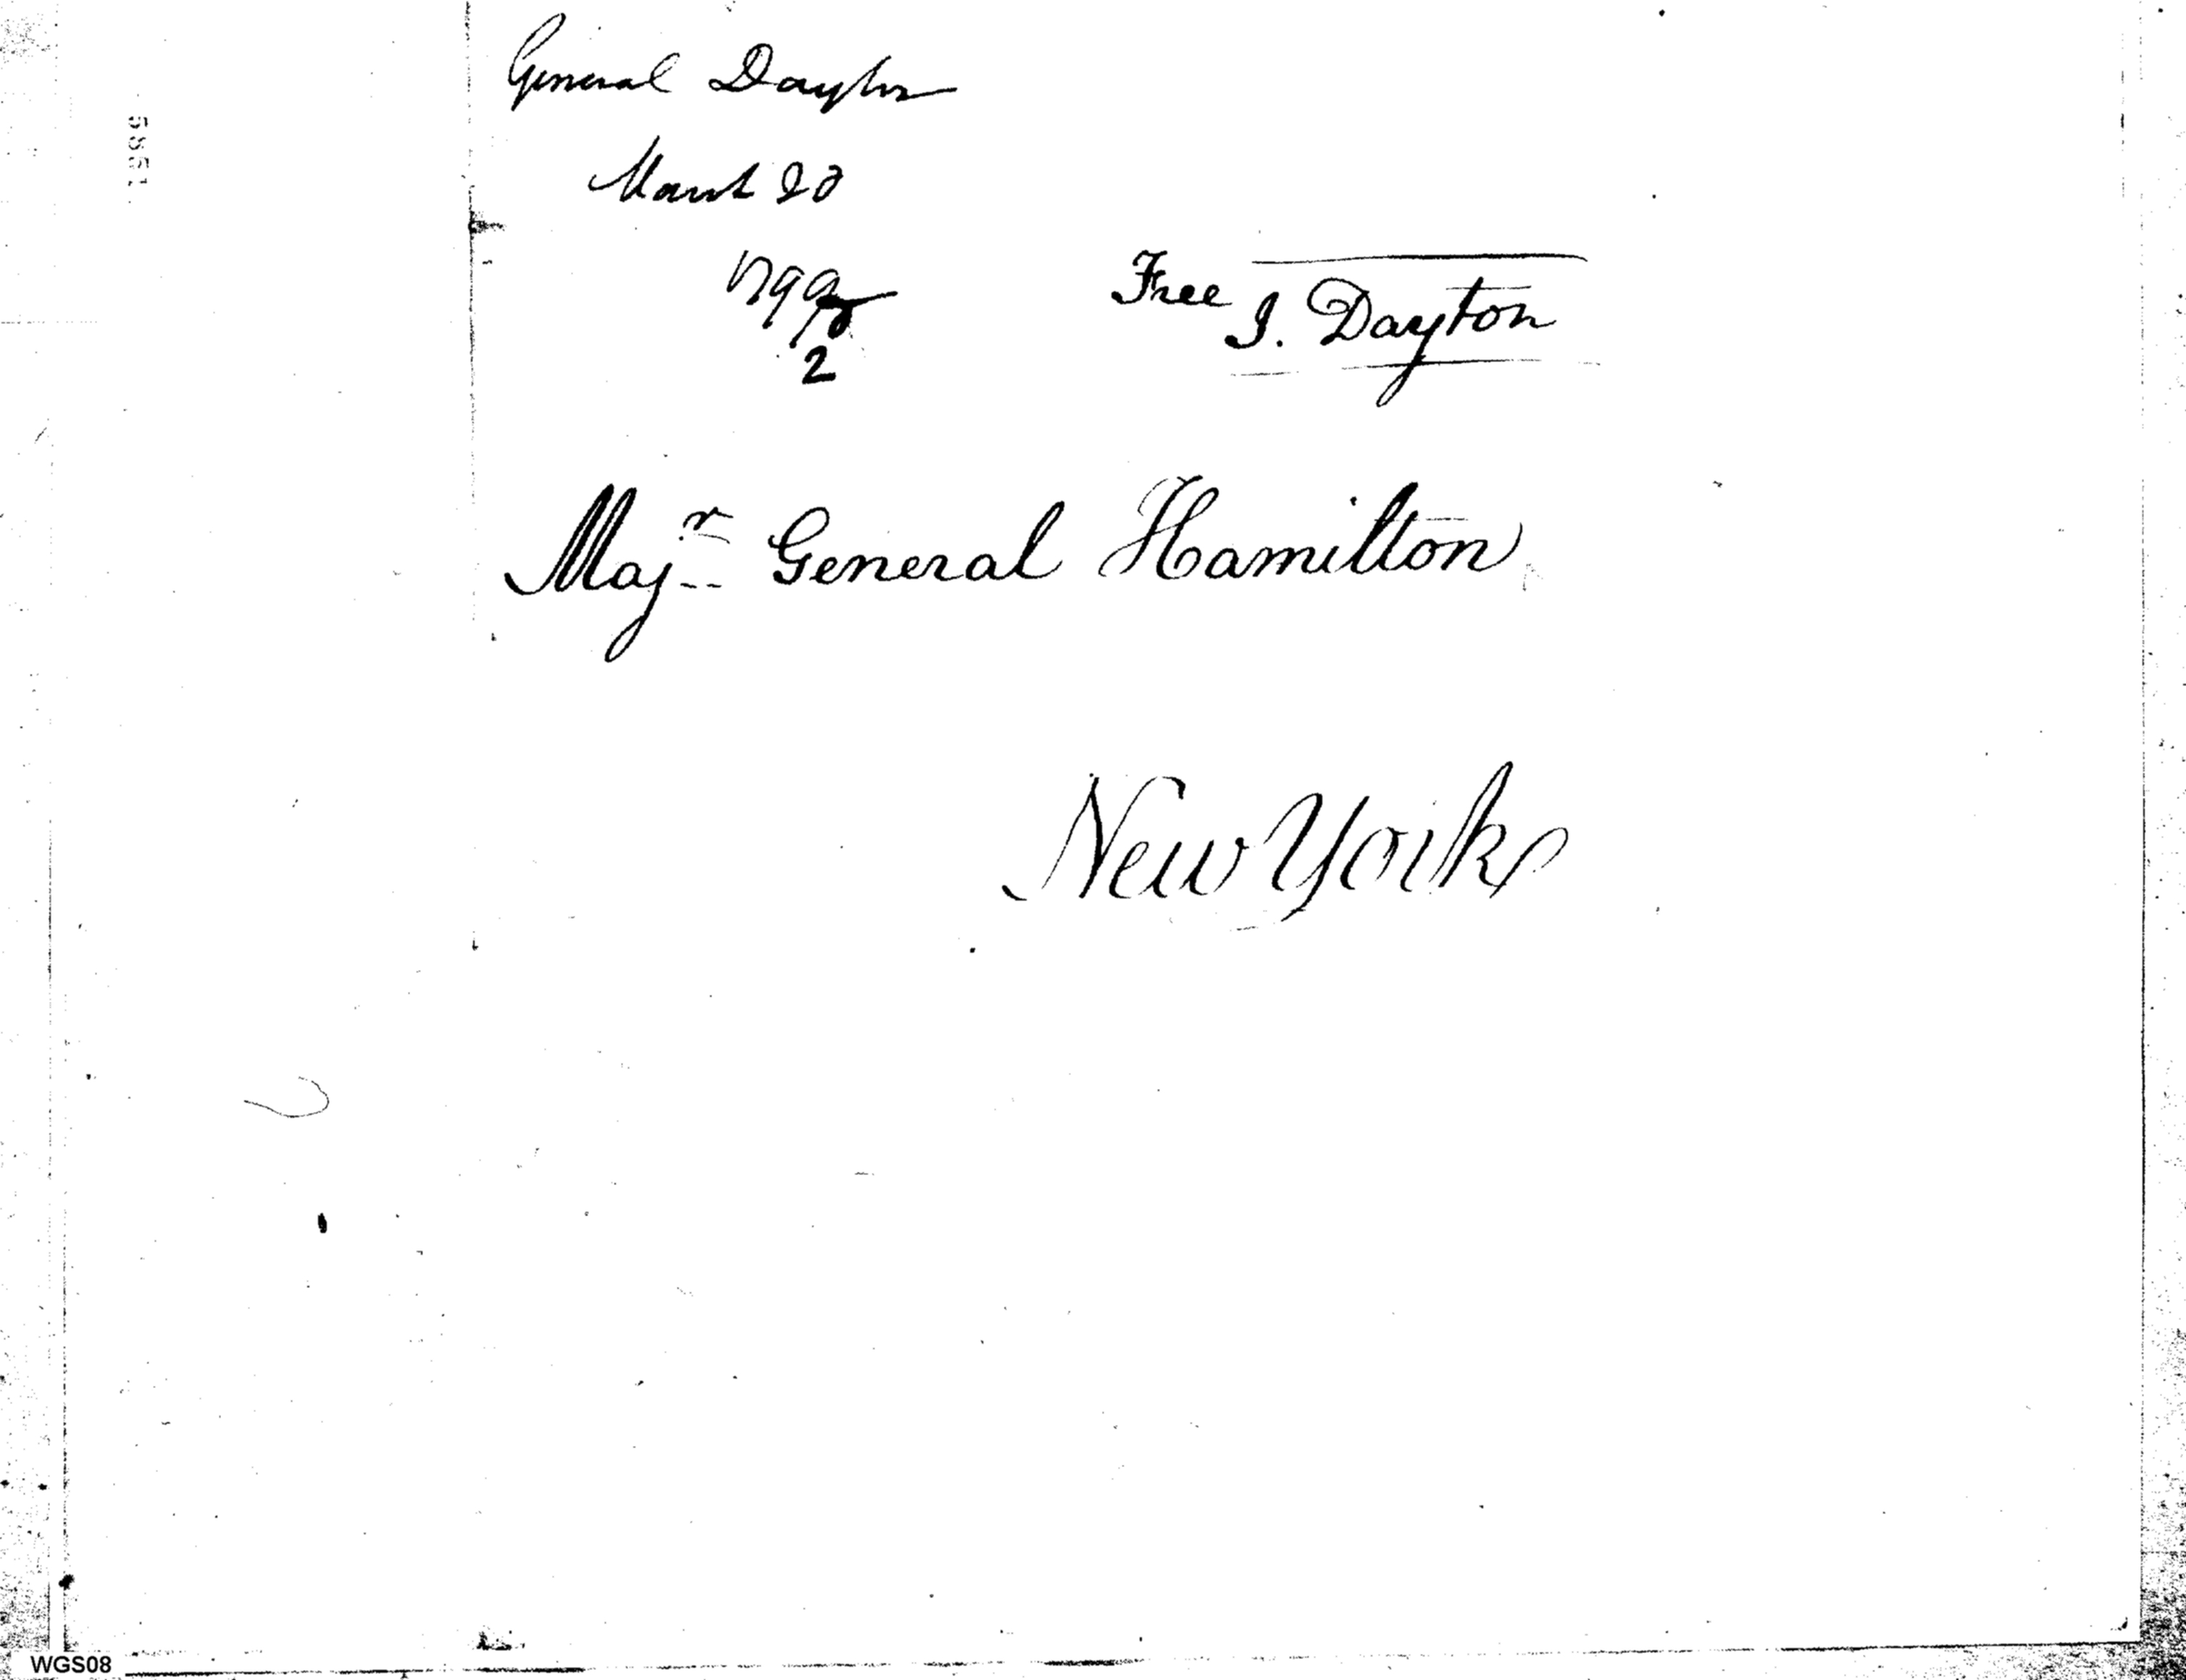 General Dayton
March 20
1799
2
Free
J. Dayton
Maj.r General Hamilton
New York
WGS08